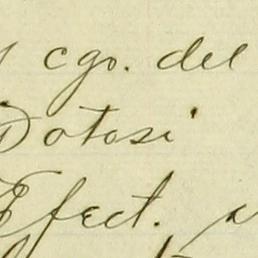 cgo. del
Potosi
Efect.